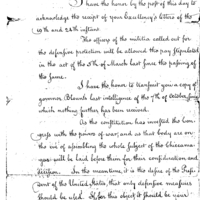 I have the honor by the post of this day to
acknowledge the receipt of your Excellency's letters of the
19th and 28th instant
The officers of the militia called out for
the defensive protection will be allowed the pay stipulated
in the act of the 5th of March last for the passing of
the same.
I have the honor to transmit you a copy of
governor Blounts last intelligence of the 7th of October from
which nothing further has been received.
As the constitution has invested the Con-
gress with the powers of war, and as that body are on
the eve of assembling the whole subject of the Chicama-
gas will be laid before them for their consideration and
decision. In the meantime, it is the desire of the Presi-
dent of the United States, that only defensive measures
should be used. If for this object it should be your